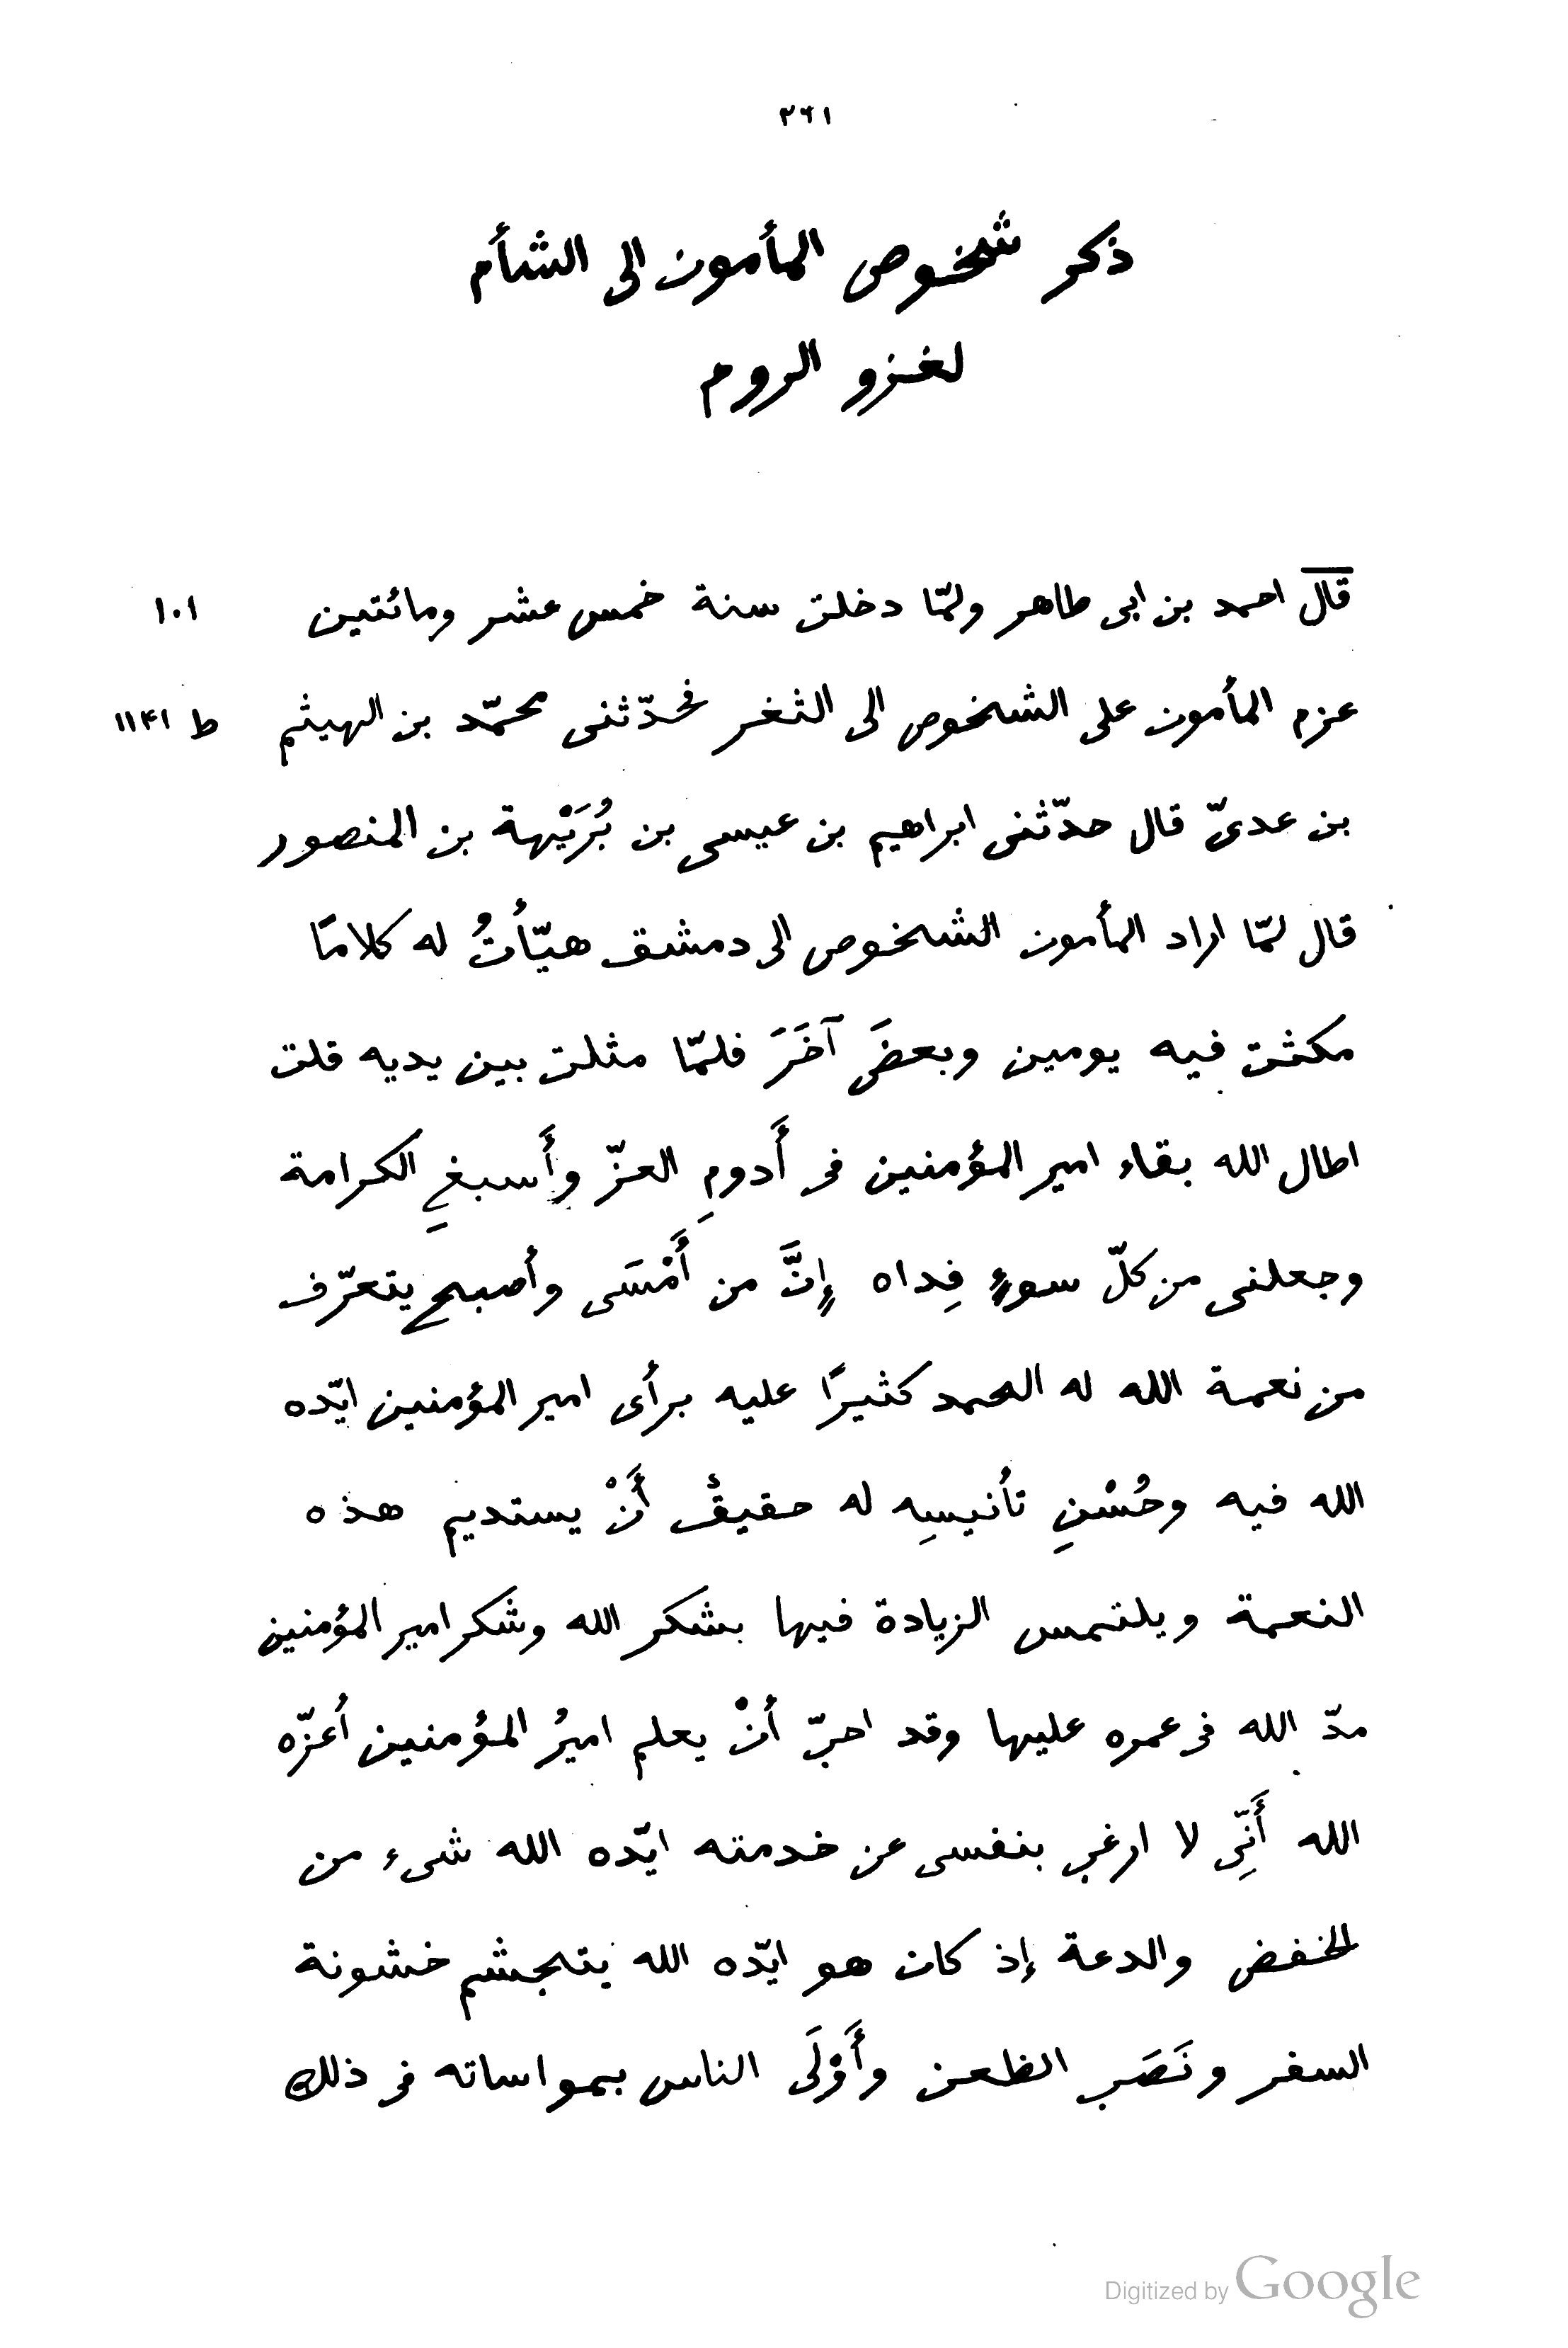 ٢٦١
ذكر شخوص المأمون الى الشأم
لغزو الروم
قال احمد بن ابى طاهر ولمّا دخلت سنة خمس عشر ومائتين ١٠١
عزم المأمون على الشخوص الى الثغر فحدّثنى محمّد بن الهيثم ط ١١۴١
بن عدىّ قال حدّثنى ابراهيم بن عيسى بن بُرَيْهة بن المنصور
قال لمّا اراد المأمون الشخوص الى دمشق هيّأتُ له كلامًا
مكثت فيه يومين وبعضَ آخَرَ فلمّا مثلت بين يديه قلت
اطال الله بقاء امير المؤمنين فى أَدومِ العزّ وأَسبغِ الكرامة
وجعلنى من كلّ سوءٍ فِداه إِنَّ من أَمْسَى وأصبح يتعرّف
من نعمة الله له الحمد كثيرًا عليه برأى امير المؤمنين ايّده
الله فيه وحُسْنِ تأنيسِه له حقيقٌ أَنْ يستديم هذه
النعمة ويلتمس الزيادة فيها بشكر الله وشكر امير المؤمنين
مدّ الله فى عمره عليها وقد احبّ أنْ يعلم اميرُ المؤمنين أعزّه
الله أَنِّى لا ارغب بنفسى عن خدمته ايّده الله شىء من
الخفض والدعة إذ كان هو ايّده الله يتجشم خشونة
السفر ونَصَب الظعن وأَوْلَى الناس بمواساته فى ذلك
Digitized by Google